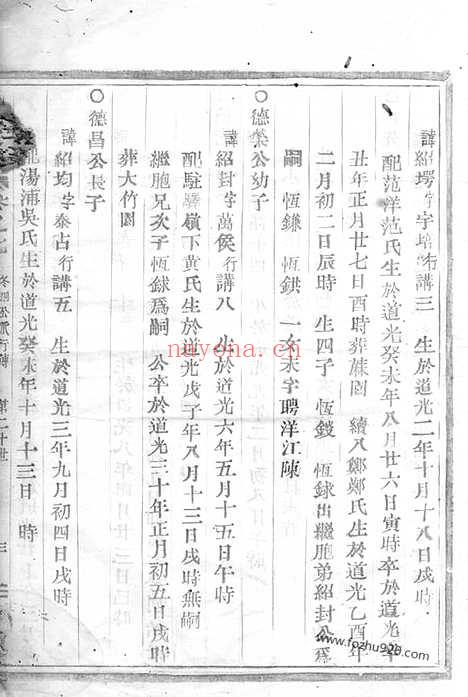 諱紹堮字宇增行講三 生於道光二年十月十八日戌時
配范洋范氏生於道光癸未年八月廿六日寅時卒於道光辛
丑年正月廿七日酉時葬蔴園 續八鄭鄭氏生於道光乙酉年
二月初二日辰時 生四子 恆鎧 恆銶出繼胞弟紹封公爲
嗣 恆鎌 恆鉷 一女未字聘洋江陳
○德榮公幼子
諱紹封字萬侯行講八 生於道光六年五月十五日午時
配駐驆嶺下黄氏生於道光戊子年八月十三日戌時無嗣
繼胞兄次子恆銶爲嗣 公卒於道光三十年正月初五日戌時
葬大竹園
○德昌公長子
諱紹均字泰占行講五 生於道光三年九月初四日戌時
配湯浦吳氏生於道光癸未年十月十三日 時
第二十世
三
nayona.cn
www.fozhu920.com